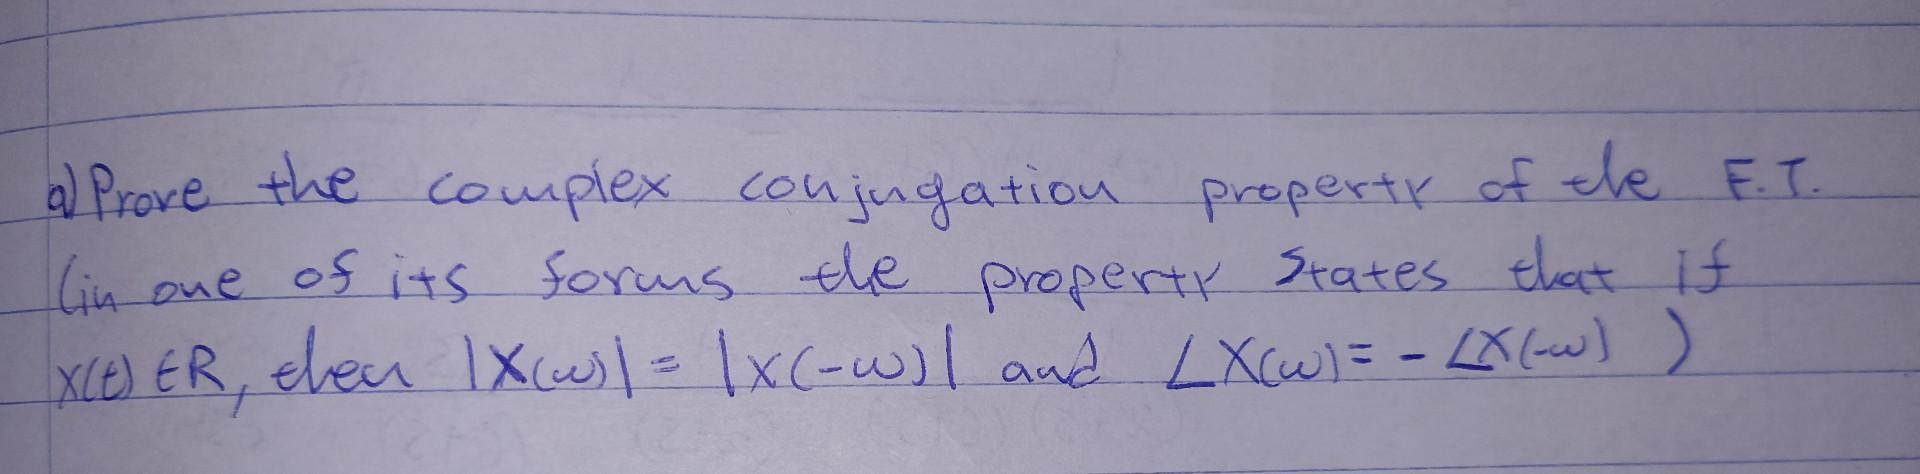 a) Prove the complex conjugation property of the F.T.
(in one of its forms the property states that if
x(t) ∈ R, then |X(ω)| = |X(-ω)| and ∠X(ω) = - ∠X(-ω) )